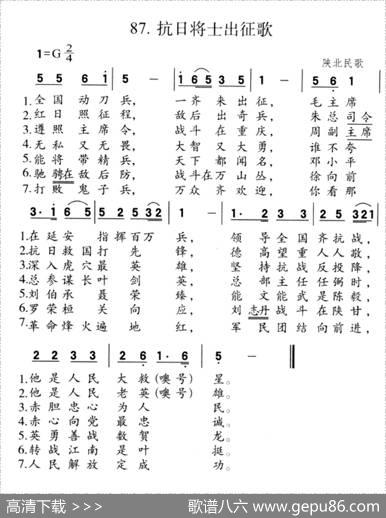 87. 抗日将士出征歌
1=G 2/4
陕北民歌
5 5 6 1 | 5 — | 1 6 5 3 5 | 5 — | 5 6 1 |
1.全国动刀兵， 一齐来出征， 毛主席
2.红日照征程， 敌后出奇兵， 朱总司令
3.遵照主席令， 战斗在重庆， 周副主席
4.无私又无畏， 大智又大勇， 谁不夸
5.能将带精兵， 天下都闻名， 邓小平
6.驰骋在敌后防， 战斗在万山丛， 徐向前
7.打败鬼子兵， 万众齐欢迎， 你看那
3· 1 6 5 | 5 2 5 3 2 | 1 — | 1· 2 3 | 5 5 2 3 2 1 |
1.在延安指挥百万兵， 领导全国齐抗战，
2.抗日救国打先锋， 德高望重人人敬，
3.深入虎穴最英雄， 坚持抗战反投降，
4.总参谋长叶剑英， 总部主任任弼时，
5.刘伯承聂荣臻， 能文能武是陈毅，
6.罗荣桓关向应， 刘志丹战斗在陕甘，
7.革命烽火遍地红， 军民团结向前进，
2 2 3 3 | 2 6 1· 6 | 5 — ‖
1.他是人民大救(噢号)星。
2.他是人民老英(噢号)雄。
3.赤胆忠心为人民。
4.赤心向党最忠诚。
5.英勇善战数贺龙。
6.转战江南是叶挺。
7.人民解放定成功。
高清下载 >>>
歌谱八六 www.gepu86.com